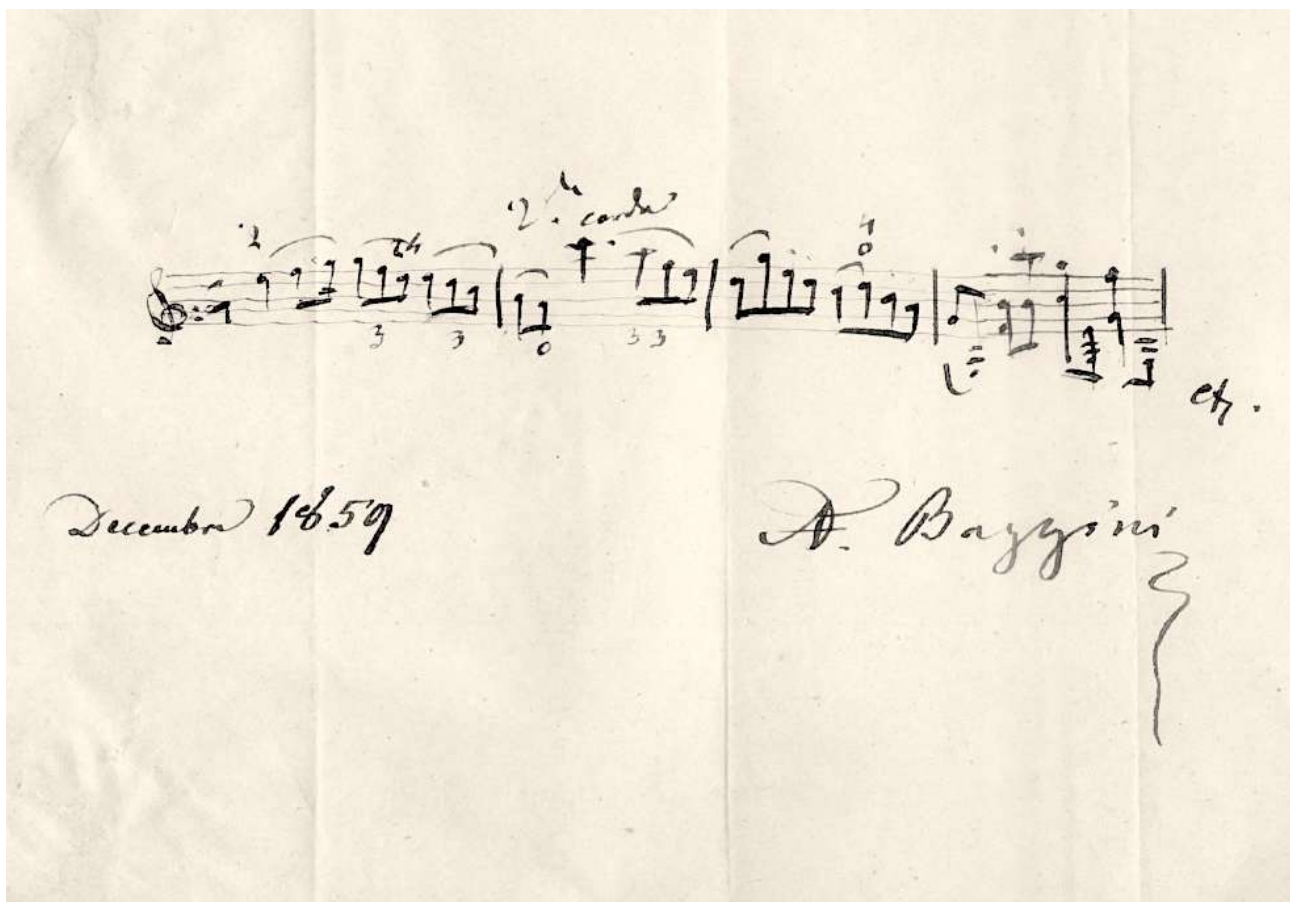 2 24
2.da corda
4
0
3 3 0 3 3
etc.
Decembre 1859 A. Bazzini